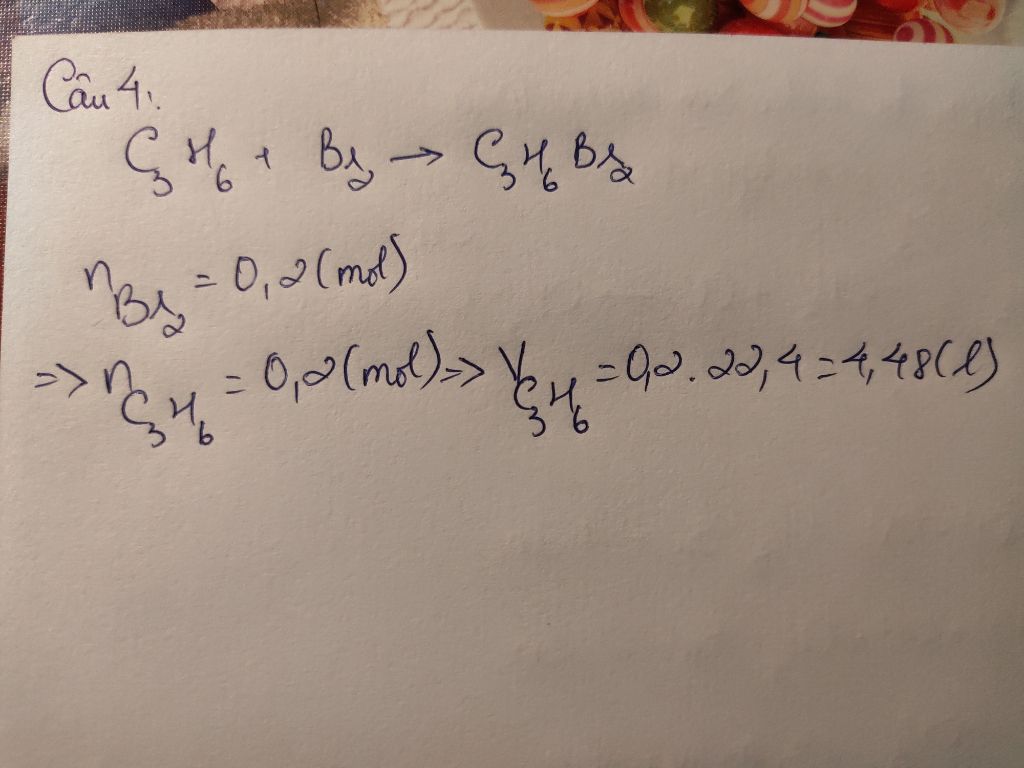 Câu 4:
C₃H₆ + Br₂ → C₃H₆Br₂
n_Br₂ = 0,2 (mol)
=> n_C₃H₆ = 0,2 (mol) => V_C₃H₆ = 0,2 . 22,4 = 4,48 (l)